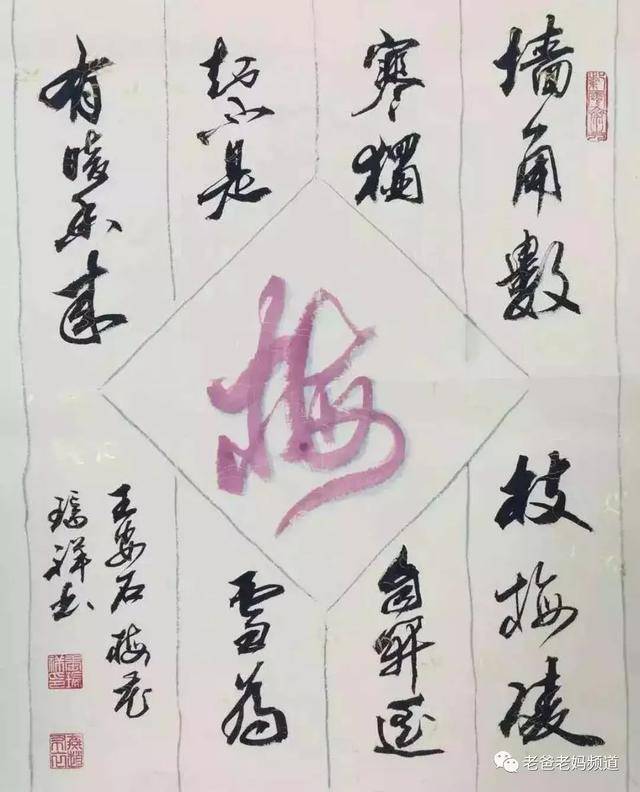 墙角數枝梅凌
寒獨自開遥
知不是雪為
有暗香来
梅
王安石梅花
瑞祥书
老爸老妈频道